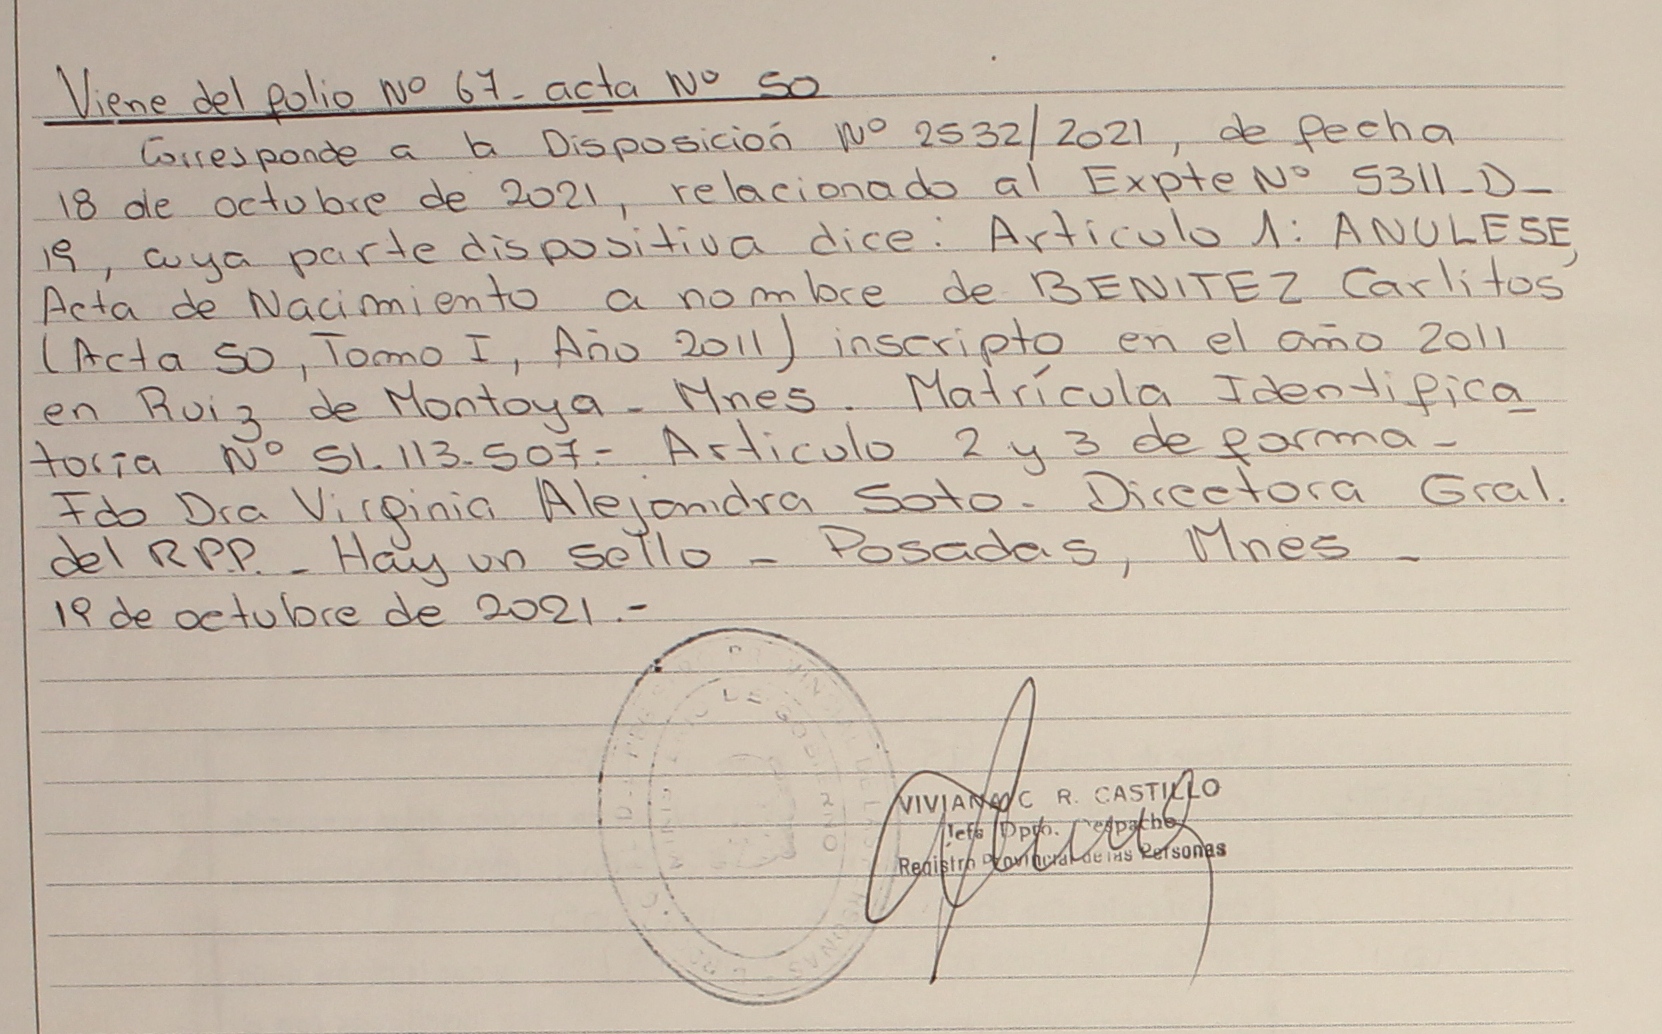 Viene del folio Nº 67 - acta Nº 50
Corresponde a la Disposición Nº 2532/2021, de fecha
18 de octubre de 2021, relacionado al Expte Nº 5311-D-
19, cuya parte dispositiva dice: Articulo 1: ANULESE,
Acta de Nacimiento a nombre de BENITEZ Carlitos
(Acta 50, Tomo I, Año 2011) inscripto en el año 2011
en Ruiz de Montoya - Mnes. Matrícula Identifica
toria Nº 51.113.507.- Articulo 2 y 3 de forma -
Fdo Dra Virginia Alejandra Soto - Directora Gral.
del R.P.P. - Hay un sello - Posadas, Mnes -
19 de octubre de 2021.-
VIVIANA C R. CASTILLO
Jefe Dpto. Despacho
Registro Provincial de las Personas